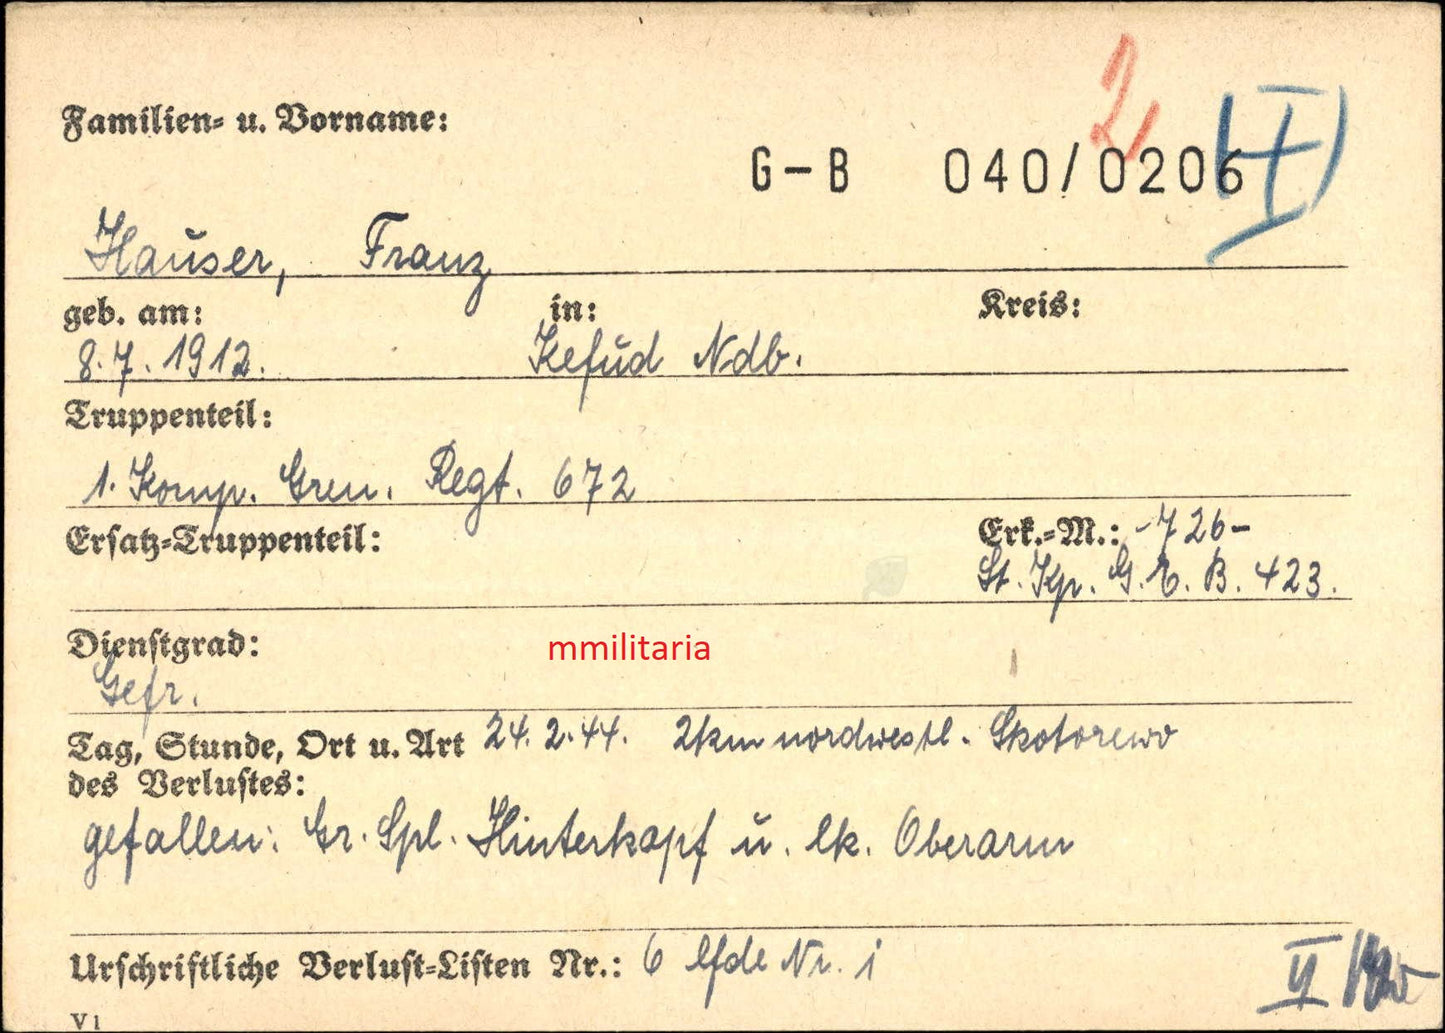 2
Familien- u. Vorname:
G-B 040/0206
Hauser, Franz
geb. am: in: Kreis:
8.7.1912. Ndb.
Truppenteil:
1. Komp. Gren. Regt. 672
Ersatz-Truppenteil: Erk.-M.: -726-
St. Kp. G. E. B. 423.
Dienstgrad:
mmilitaria
Gefr.
Tag, Stunde, Ort u. Art 24.2.44. 2km nordwestl. Skotorewo
des Verlustes:
gefallen: Gr. Spl. Hinterkopf u. lk. Oberarm
Urschriftliche Verlust-Listen Nr.: 6 lfde Nr. 1
V1